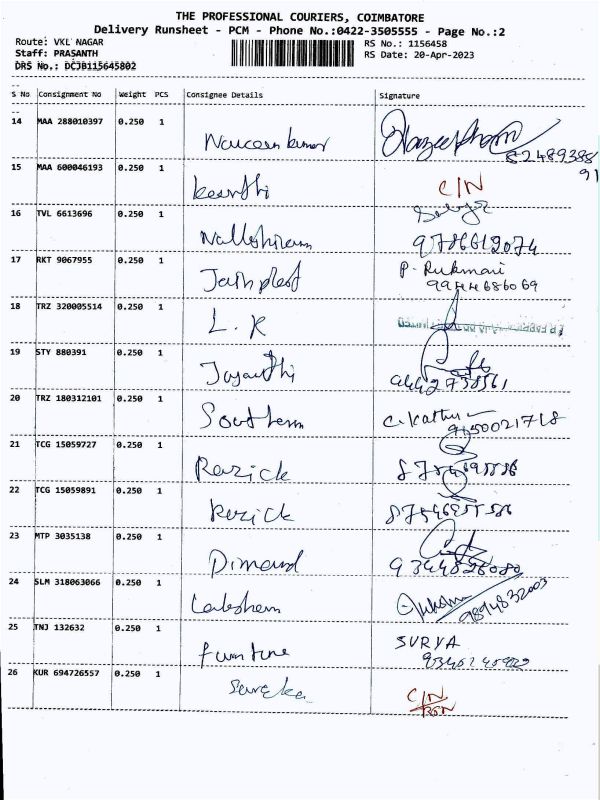 THE PROFESSIONAL COURIERS, COIMBATORE
Delivery Runsheet - PCM - Phone No.:0422-3505555 - Page No.:2
Route: VKL NAGAR
RS No.: 1156458
Staff: PRASANTH
RS Date: 20-Apr-2023
DRS No.: DCJB115645802
S No Consignment No Weight PCS Consignee Details Signature
14 MAA 288010397 0.250 1
Naveen kumar
15 MAA 600046193 0.250 1
keerthi C/N
16 TVL 6613696 0.250 1
9786612074
17 RKT 9067955 0.250 1
P. Rukmani
9944686069
18 TRZ 320005514 0.250 1
L. K
19 STY 880391 0.250 1
Jayanthi
9442738561
20 TRZ 180312101 0.250 1
Southern
9150021718
21 TCG 15059727 0.250 1
Razick
22 TCG 15059891 0.250 1
Razick
23 MTP 3035138 0.250 1
Dimand
9344826080
24 SLM 318063066 0.250 1
9894832003
25 TNJ 132632 0.250 1
SURYA
26 KUR 694726557 0.250 1
C/N